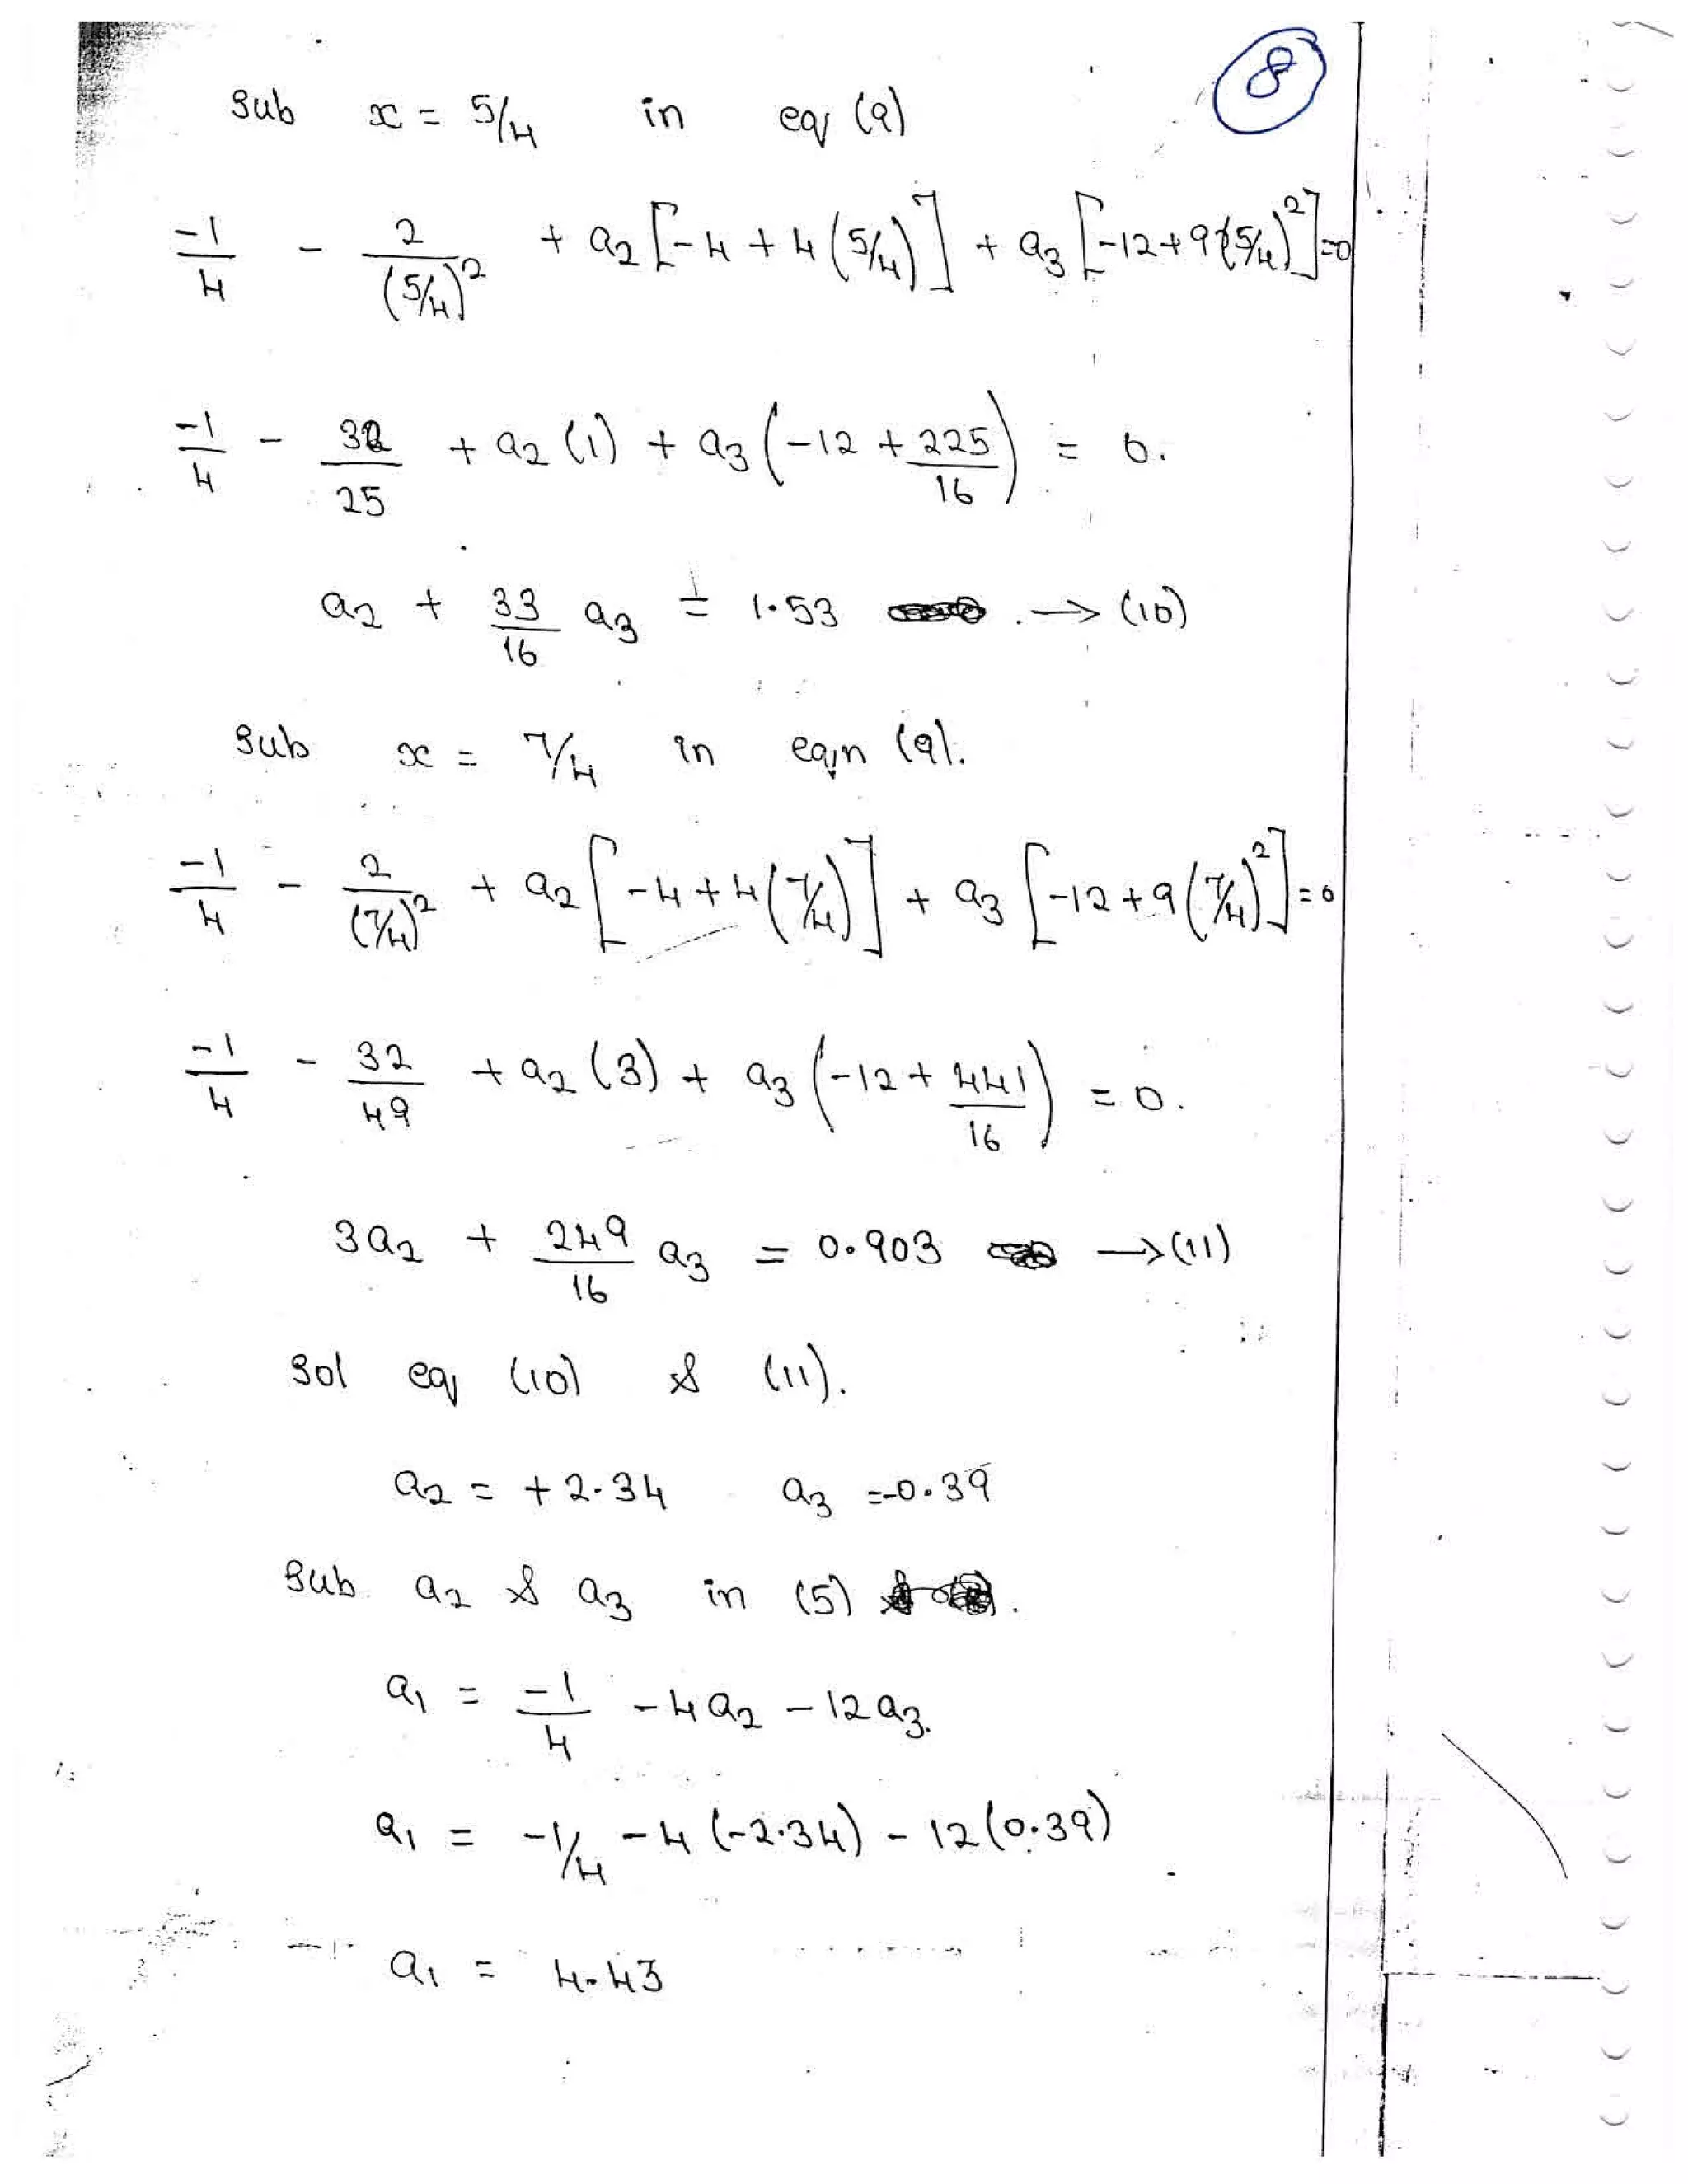 8
Sub x = 5/4 in eq (9)
-1/4 - 2/(5/4)² + a₂[-4 + 4(5/4)] + a₃[-12 + 9(5/4)²] = 0
-1/4 - 32/25 + a₂(1) + a₃(-12 + 225/16) = 0.
a₂ + 33/16 a₃ = 1.53 → (10)
Sub x = 7/4 in eqn (9).
-1/4 - 2/(7/4)² + a₂[-4 + 4(7/4)] + a₃[-12 + 9(7/4)²] = 0
-1/4 - 32/49 + a₂(3) + a₃(-12 + 441/16) = 0.
3a₂ + 249/16 a₃ = 0.903 → (11)
Sol eq (10) & (11).
a₂ = +2.34 a₃ = -0.39
Sub a₂ & a₃ in (5) .
a₁ = -1/4 - 4a₂ - 12a₃.
a₁ = -1/4 - 4(-2.34) - 12(0.39)
a₁ = 4.43